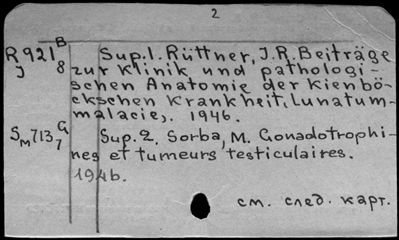 2
R921 B Sup.1. Rüttner, J.R. Beiträge
J 8 zur klinik und pathologi-
schen Anatomie der kienbö-
ckschen Krankheit, (Lunatum-
malacie). 1946.
SM713 G Sup.2. Sorba, M. Gonadotrophi-
7 nes et tumeurs testiculaires.
1946.
см. след. карт.